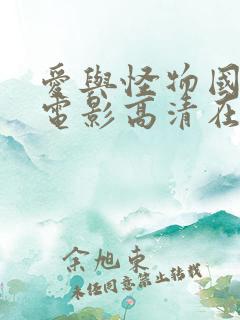 愛與怪物國
電影高清在
余旭東
未经同意禁止转载